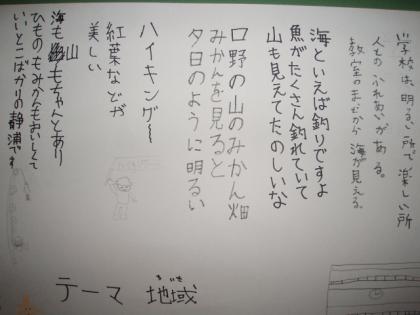 学校は、明るい所で楽しい所
人とのふれあいがある。
教室のまどから海が見える。
海といえば釣りですよ
魚がたくさん釣れていて
山も見えてたのしいな
口野の山のみかん畑
みかんを見ると
夕日のように明るい
ハイキング〜
紅葉などが
美しい
海も山もちゃんとあり
ひものもみかんもおいしくて
いいとこばかりの静浦です
テーマ 地域
ちいき